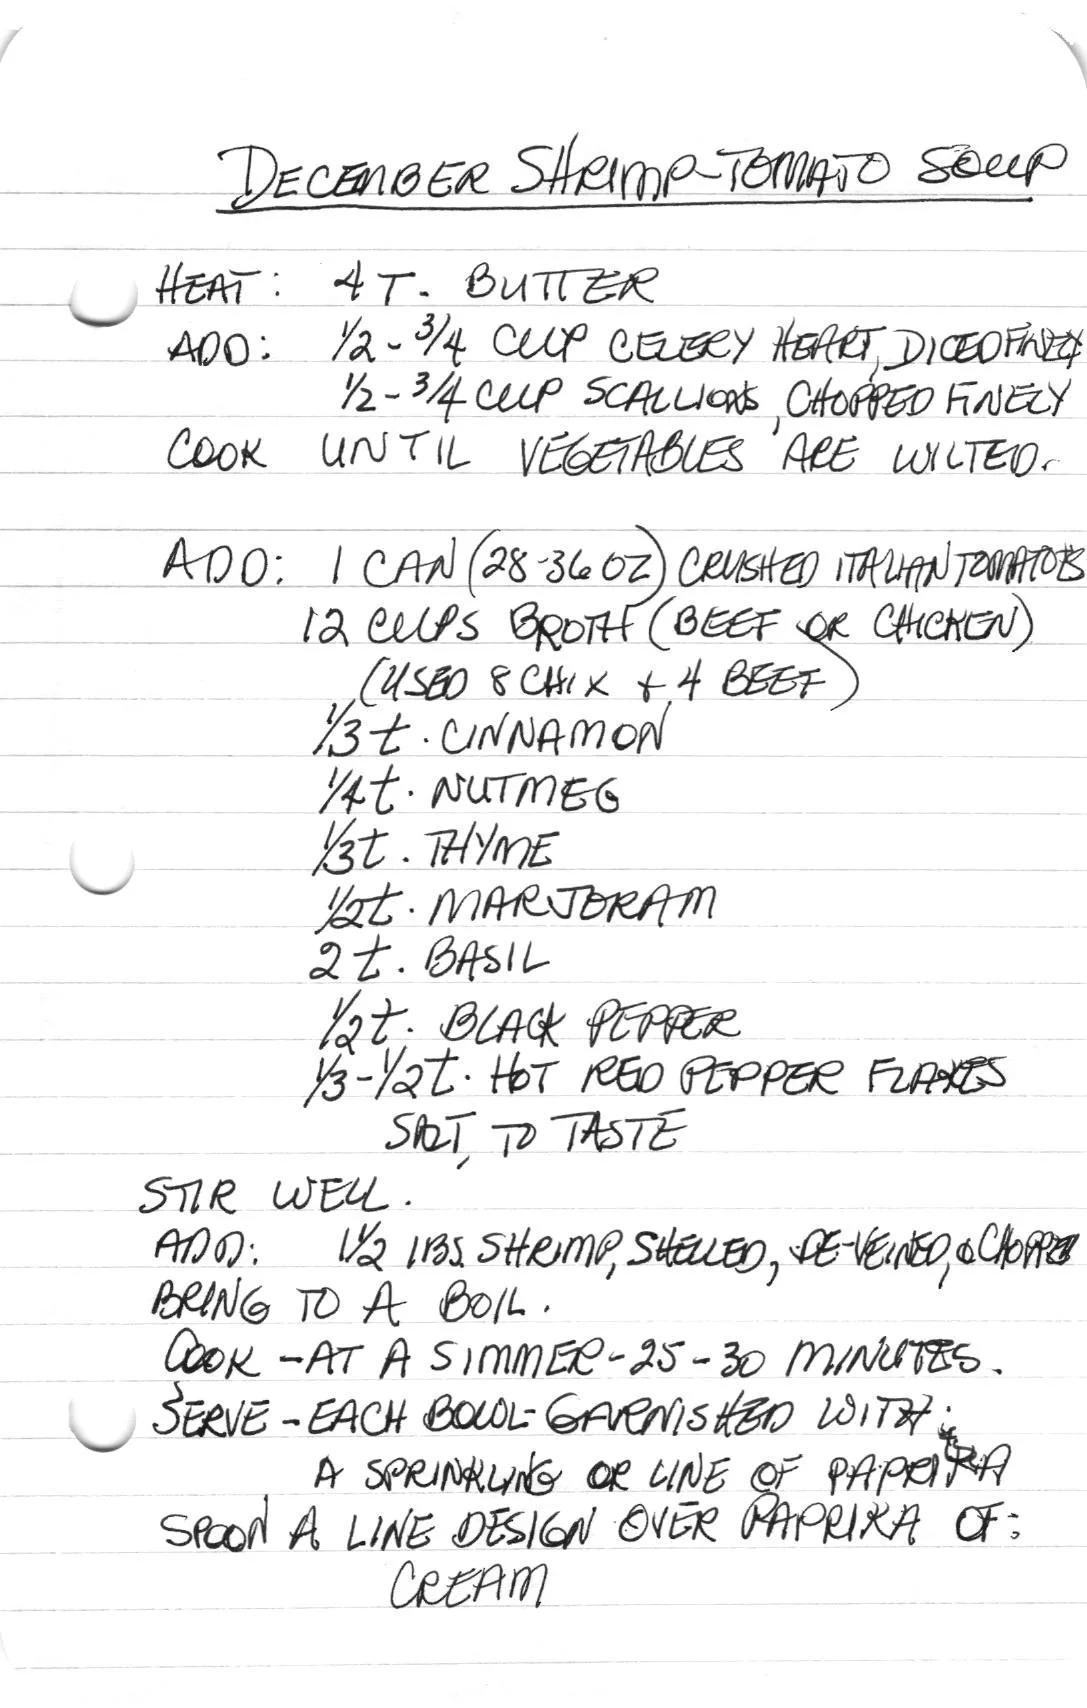 DECEMBER SHRIMP-TOMATO SOUP
HEAT: 4 T. BUTTER
ADD: 1/2 - 3/4 CUP CELERY HEART, DICED FINELY
1/2 - 3/4 CUP SCALLIONS, CHOPPED FINELY
COOK UNTIL VEGETABLES ARE WILTED.
ADD: 1 CAN (28-36 OZ) CRUSHED ITALIAN TOMATOES
12 CUPS BROTH (BEEF OR CHICKEN)
(USED 8 CHIX + 4 BEEF)
1/3 t. CINNAMON
1/4 t. NUTMEG
1/3 t. THYME
1/2 t. MARJORAM
2 t. BASIL
1/2 t. BLACK PEPPER
1/3 - 1/2 t. HOT RED PEPPER FLAKES
SALT, TO TASTE
STIR WELL.
ADD: 1 1/2 LBS. SHRIMP, SHELLED, DE-VEINED, & CHOPPED
BRING TO A BOIL.
COOK - AT A SIMMER - 25 - 30 MINUTES.
SERVE - EACH BOWL - GARNISHED WITH:
A SPRINKLING OR LINE OF PAPRIKA
SPOON A LINE DESIGN OVER PAPRIKA OF:
CREAM